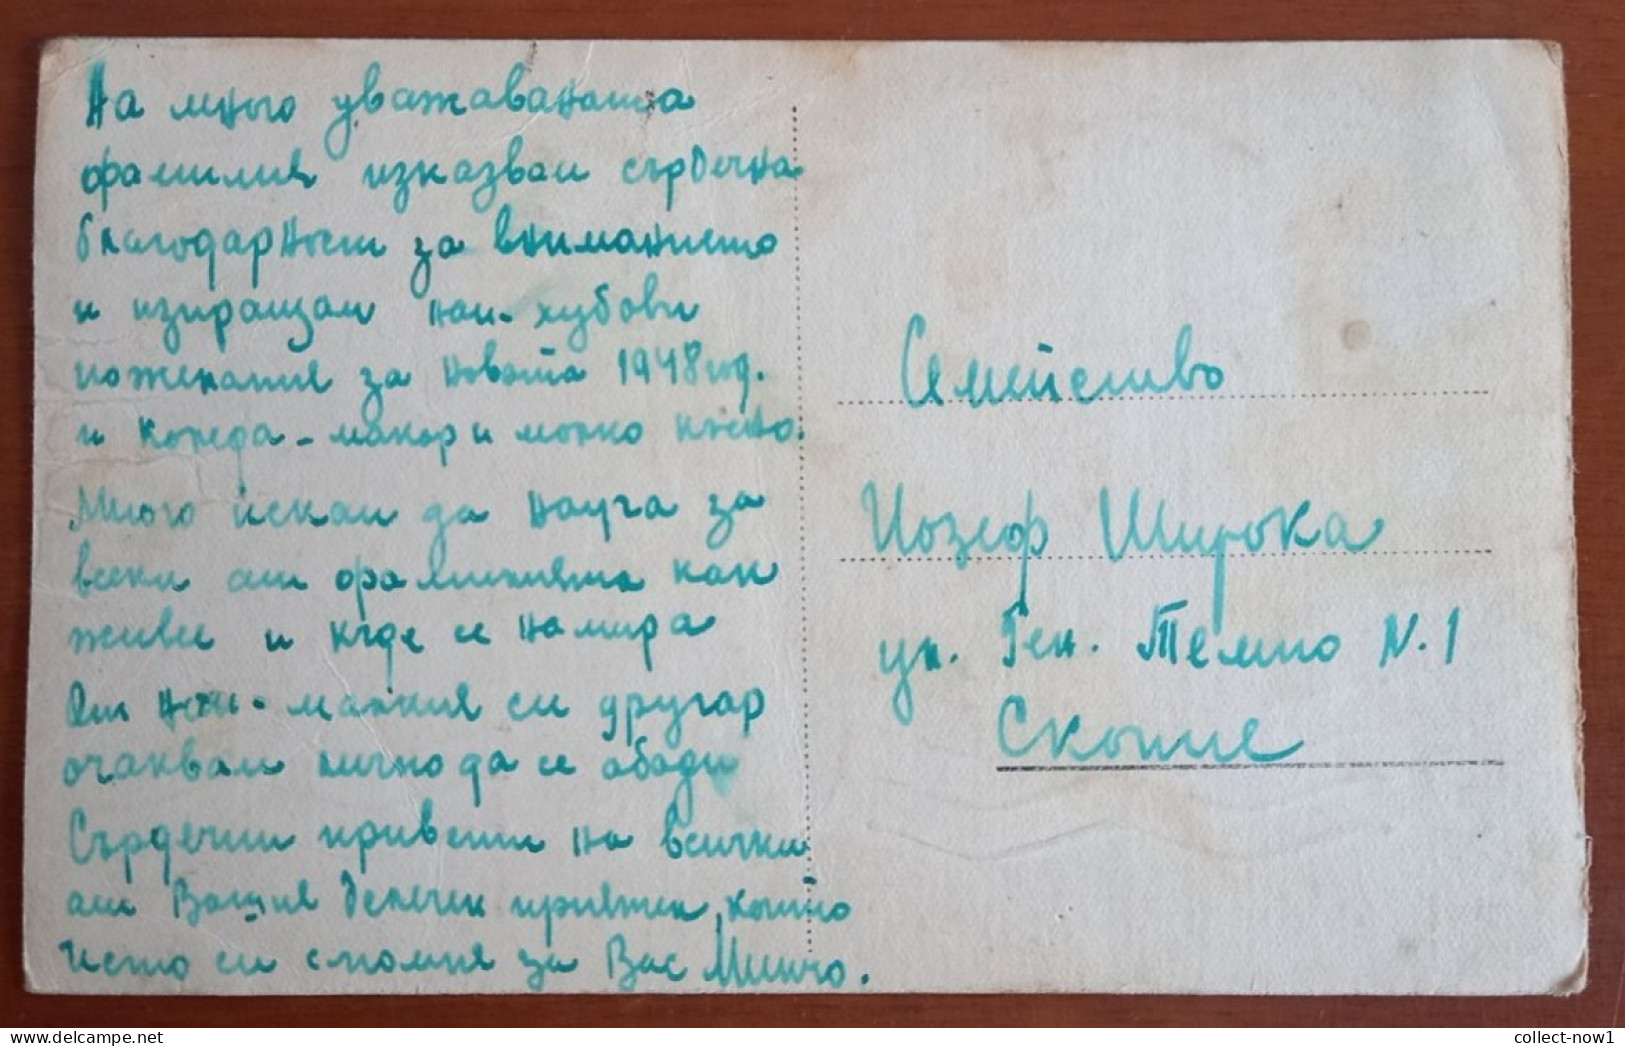 На много уважаваната
фамилия изказвам сърдечна
благодарност за вниманието
и изпращам най-хубови
пожелания за новата 1948 год.
и коледа - макар и малко късно.
Много искам да науча за
всеки от фамилията как
живее и къде се намира
От най-малкия си другар
очаквам лично да се обади
Сърдечни привети на всички
от Вашия далечен приятел, който
често си спомня за Вас Минчо.
Семейство
Иозеф Широка
ул. Ген. Темпо N.1
Скопие
collect-now1